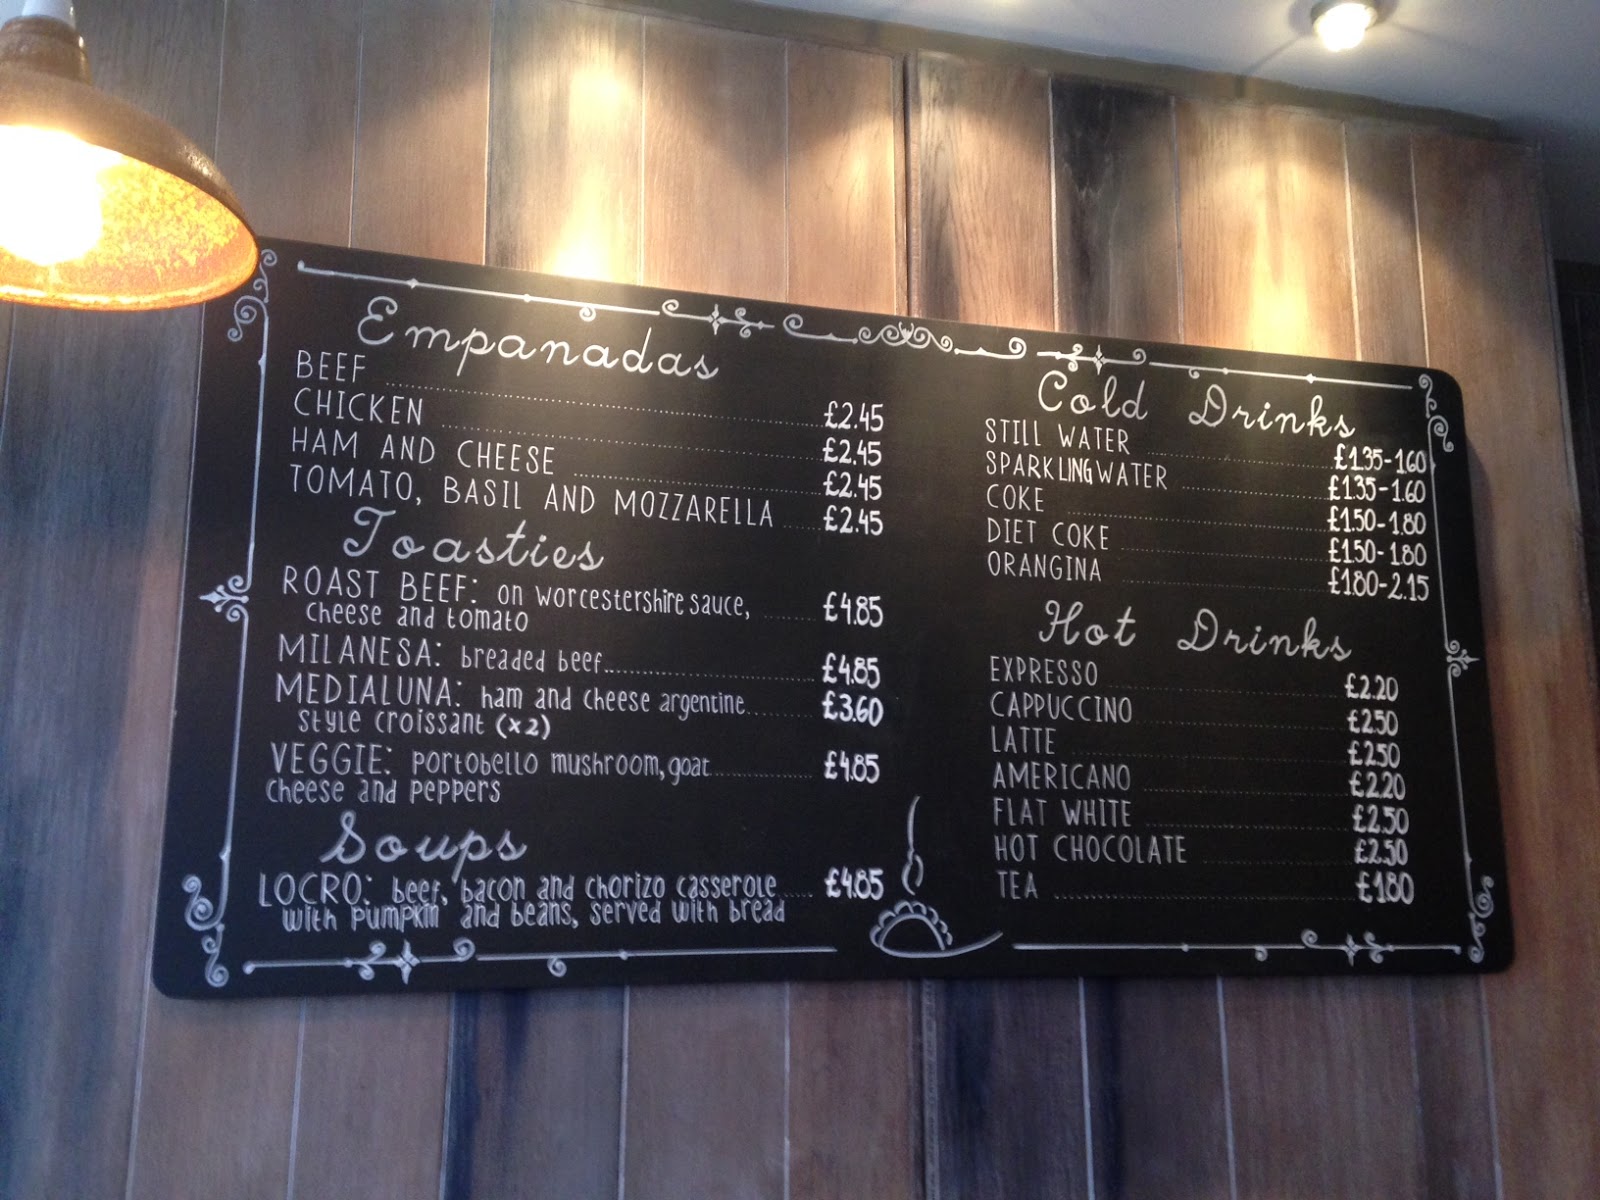 Empanadas
BEEF ........ £2.45
CHICKEN ........ £2.45
HAM AND CHEESE ........ £2.45
TOMATO, BASIL AND MOZZARELLA ..... £2.45
Toasties
ROAST BEEF: on worcestershire sauce, ........ £4.85
cheese and tomato
MILANESA: breaded beef........ £4.85
MEDIALUNA: ham and cheese argentine........ £3.60
style croissant (x2)
VEGGIE: portobello mushroom, goat........ £4.85
cheese and peppers
Soups
LOCRO: beef, bacon and chorizo casserole..... £4.85
with pumpkin and beans, served with bread
Cold Drinks
STILL WATER ........ £1.35-1.60
SPARKLING WATER ........ £1.35-1.60
COKE ........ £1.50-1.80
DIET COKE ........ £1.50-1.80
ORANGINA ........ £1.80-2.15
Hot Drinks
EXPRESSO ........ £2.20
CAPPUCCINO ........ £2.50
LATTE ........ £2.50
AMERICANO ........ £2.20
FLAT WHITE ........ £2.50
HOT CHOCOLATE ........ £2.50
TEA ........ £1.80